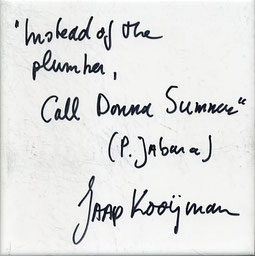 "Instead of the
plumber,
Call Donna Summer"
(P. Jabara)
Jaap Kooijman